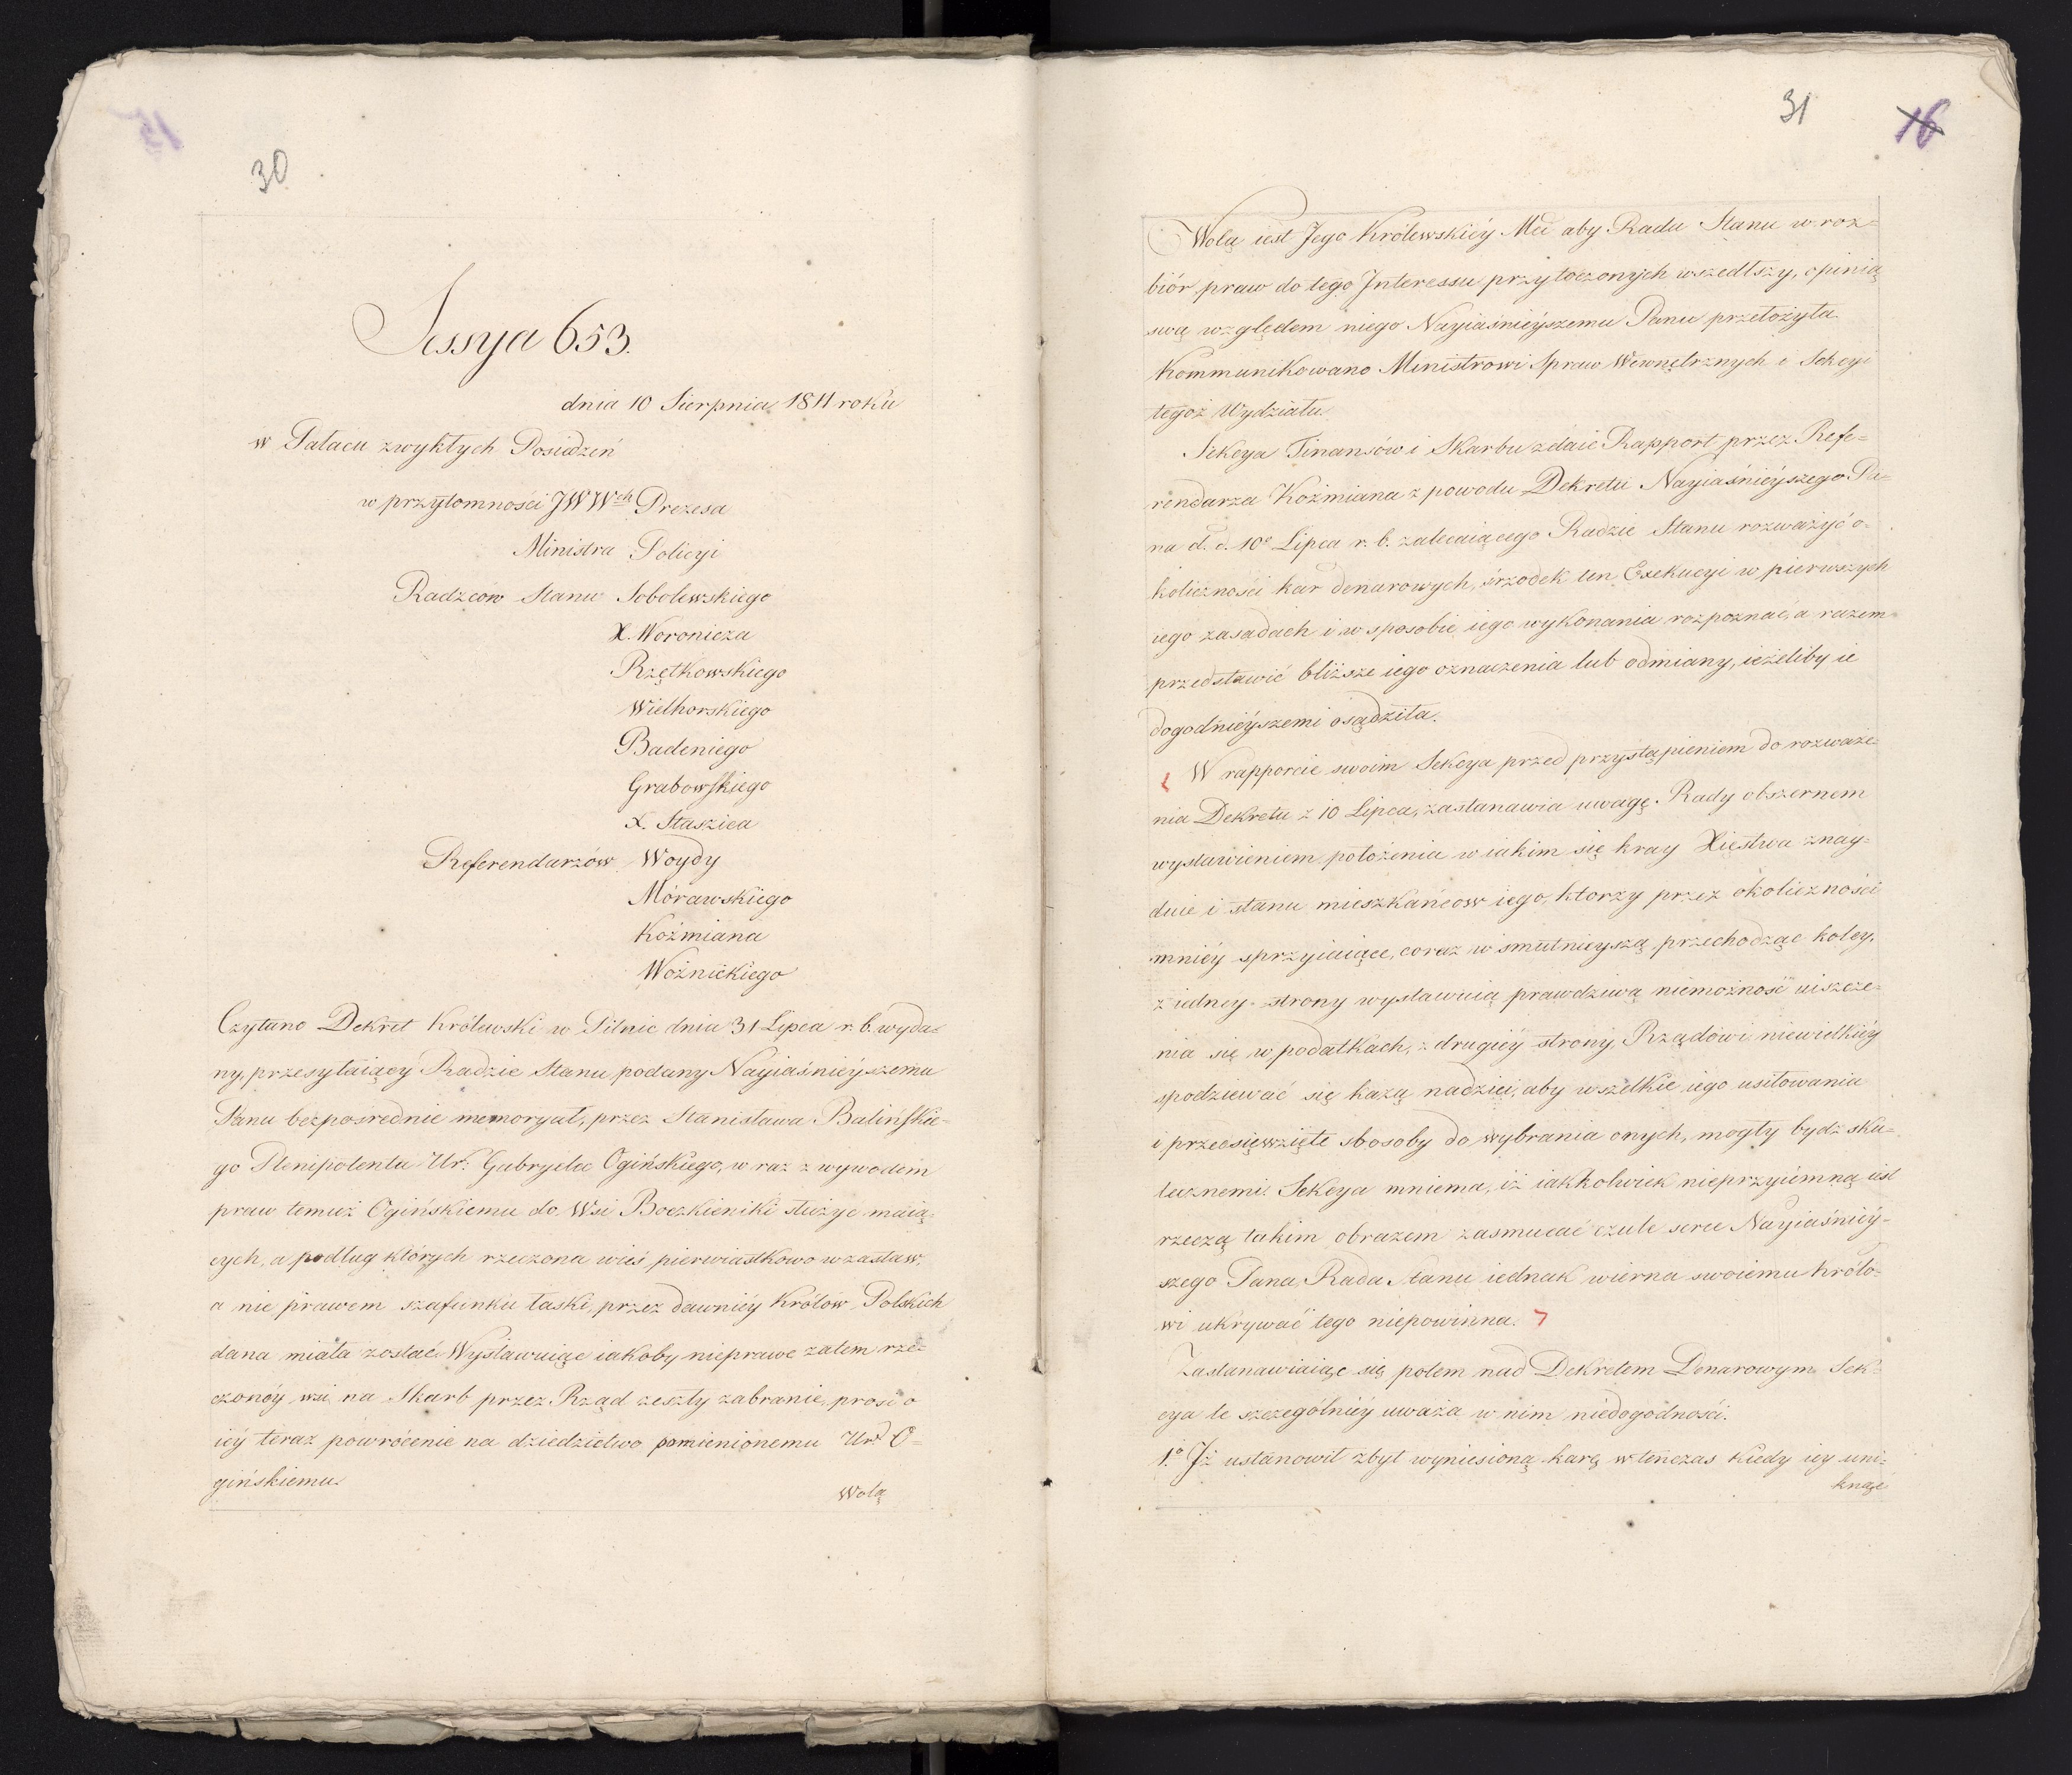 30
Sessya 653.
dnia 10 Sierpnia 1811 roku
w Pałacu zwykłych Posiedzeń
w przytomności JWWch Prezesa
Ministra Policyi
Radzców Stanu Sobolewskiego
X. Woronicza
Rzętkowskiego
Wielhorskiego
Badeniego
Grabowskiego
X. Staszica
Referendarzów Woydy
Mórawskiego
Koźmiana
Woźnickiego
Czytano Dekret Królewski w Pilnic dnia 31 Lipca r. b. wyda=
ny, przesyłaiący Radzie Stanu podany Nayiaśnieyszemu
Panu bezpośrednie memoryał, przez Stanisława Balińskie=
go Plenipotenta Ur: Gabryela Ogińskiego, w raz z wywodem
praw temuż Ogińskiemu do Wsi Boczkieniki służyć maią=
cych, a podług których rzeczona wieś pierwiastkowo w zastaw,
a nie prawem szafunku łaski, przez dawniéy Królów Polskich
dana miała zostać. Wystawuiąc iakoby nieprawe zatem rze=
czonéy wsi na Skarb przez Rząd zeszły zabranie, prosi o
iéy teraz powrócenie na dziedzictwo pomienionemu Ur: O=
gińskiemu.
Wolą
31
16
Wolą iest Jego Królewskiéy Mci aby Rada Stanu w roz=
biór praw do tego Interessu przytoczonych wszedłszy, opinią
swą względem niego Nayiaśniéyszemu Panu przełożyła.
Kommunikowano Ministrowi Spraw Wewnętrznych i Sekcyi
tegoż Wydziału.
Sekcya Finansów i Skarbu zdaie Rapport przez Refe=
rendarza Koźmiana z powodu Dekretu Nayiaśniéyszego Pa=
na d. d. 10o Lipca r. b. zalecaiącego Radzie Stanu rozważyć o=
koliczności kar denarowych, śrzodek ten Exekucyi w pierwszych
iego zasadach i w sposobie iego wykonania rozpoznać, a razem
przedstawić bliższe iego oznaczenia lub odmiany, ieżeliby ie
dogodniéyszemi osądziła.
W rapporcie swoim Sekcya przed przystąpieniem do rozważe=
nia Dekretu z 10 Lipca, zastanawia uwagę Rady obszernem
wystawieniem położenia w iakim się kray Xięstwa znay=
duie i stanu mieszkańców iego, ktorzy przez okoliczności
mniéy sprzyiaiące, coraz w smutnieyszą przechodząc koley,
z iedney strony wystawuią prawdziwą niemożność uiszcze=
nia się w podatkach, z drugiéy strony, Rządowi niewielkiéy
spodziewać się każą nadziei, aby wszelkie iego usiłowania
i przedsięwzięte sbosoby do wybrania onych, mogły bydź sku=
tecznemi. Sekcya mniema, iż iakkolwiek nieprzyiémną iest
rzeczą takim obrazem zasmucać czułe serce Nayiaśniéy=
szego Pana, Rada Stanu iednak wierna swoiemu Królo=
wi ukrywać tego niepowinna.
Zastanawiaiąc się potem nad Dekretem Denarowym Sek=
cya te szczególniéy uważa w nim niedogodności.
1o. Iż ustanowił zbyt wyniesioną karę wtenczas kiedy iey uni=
knąć